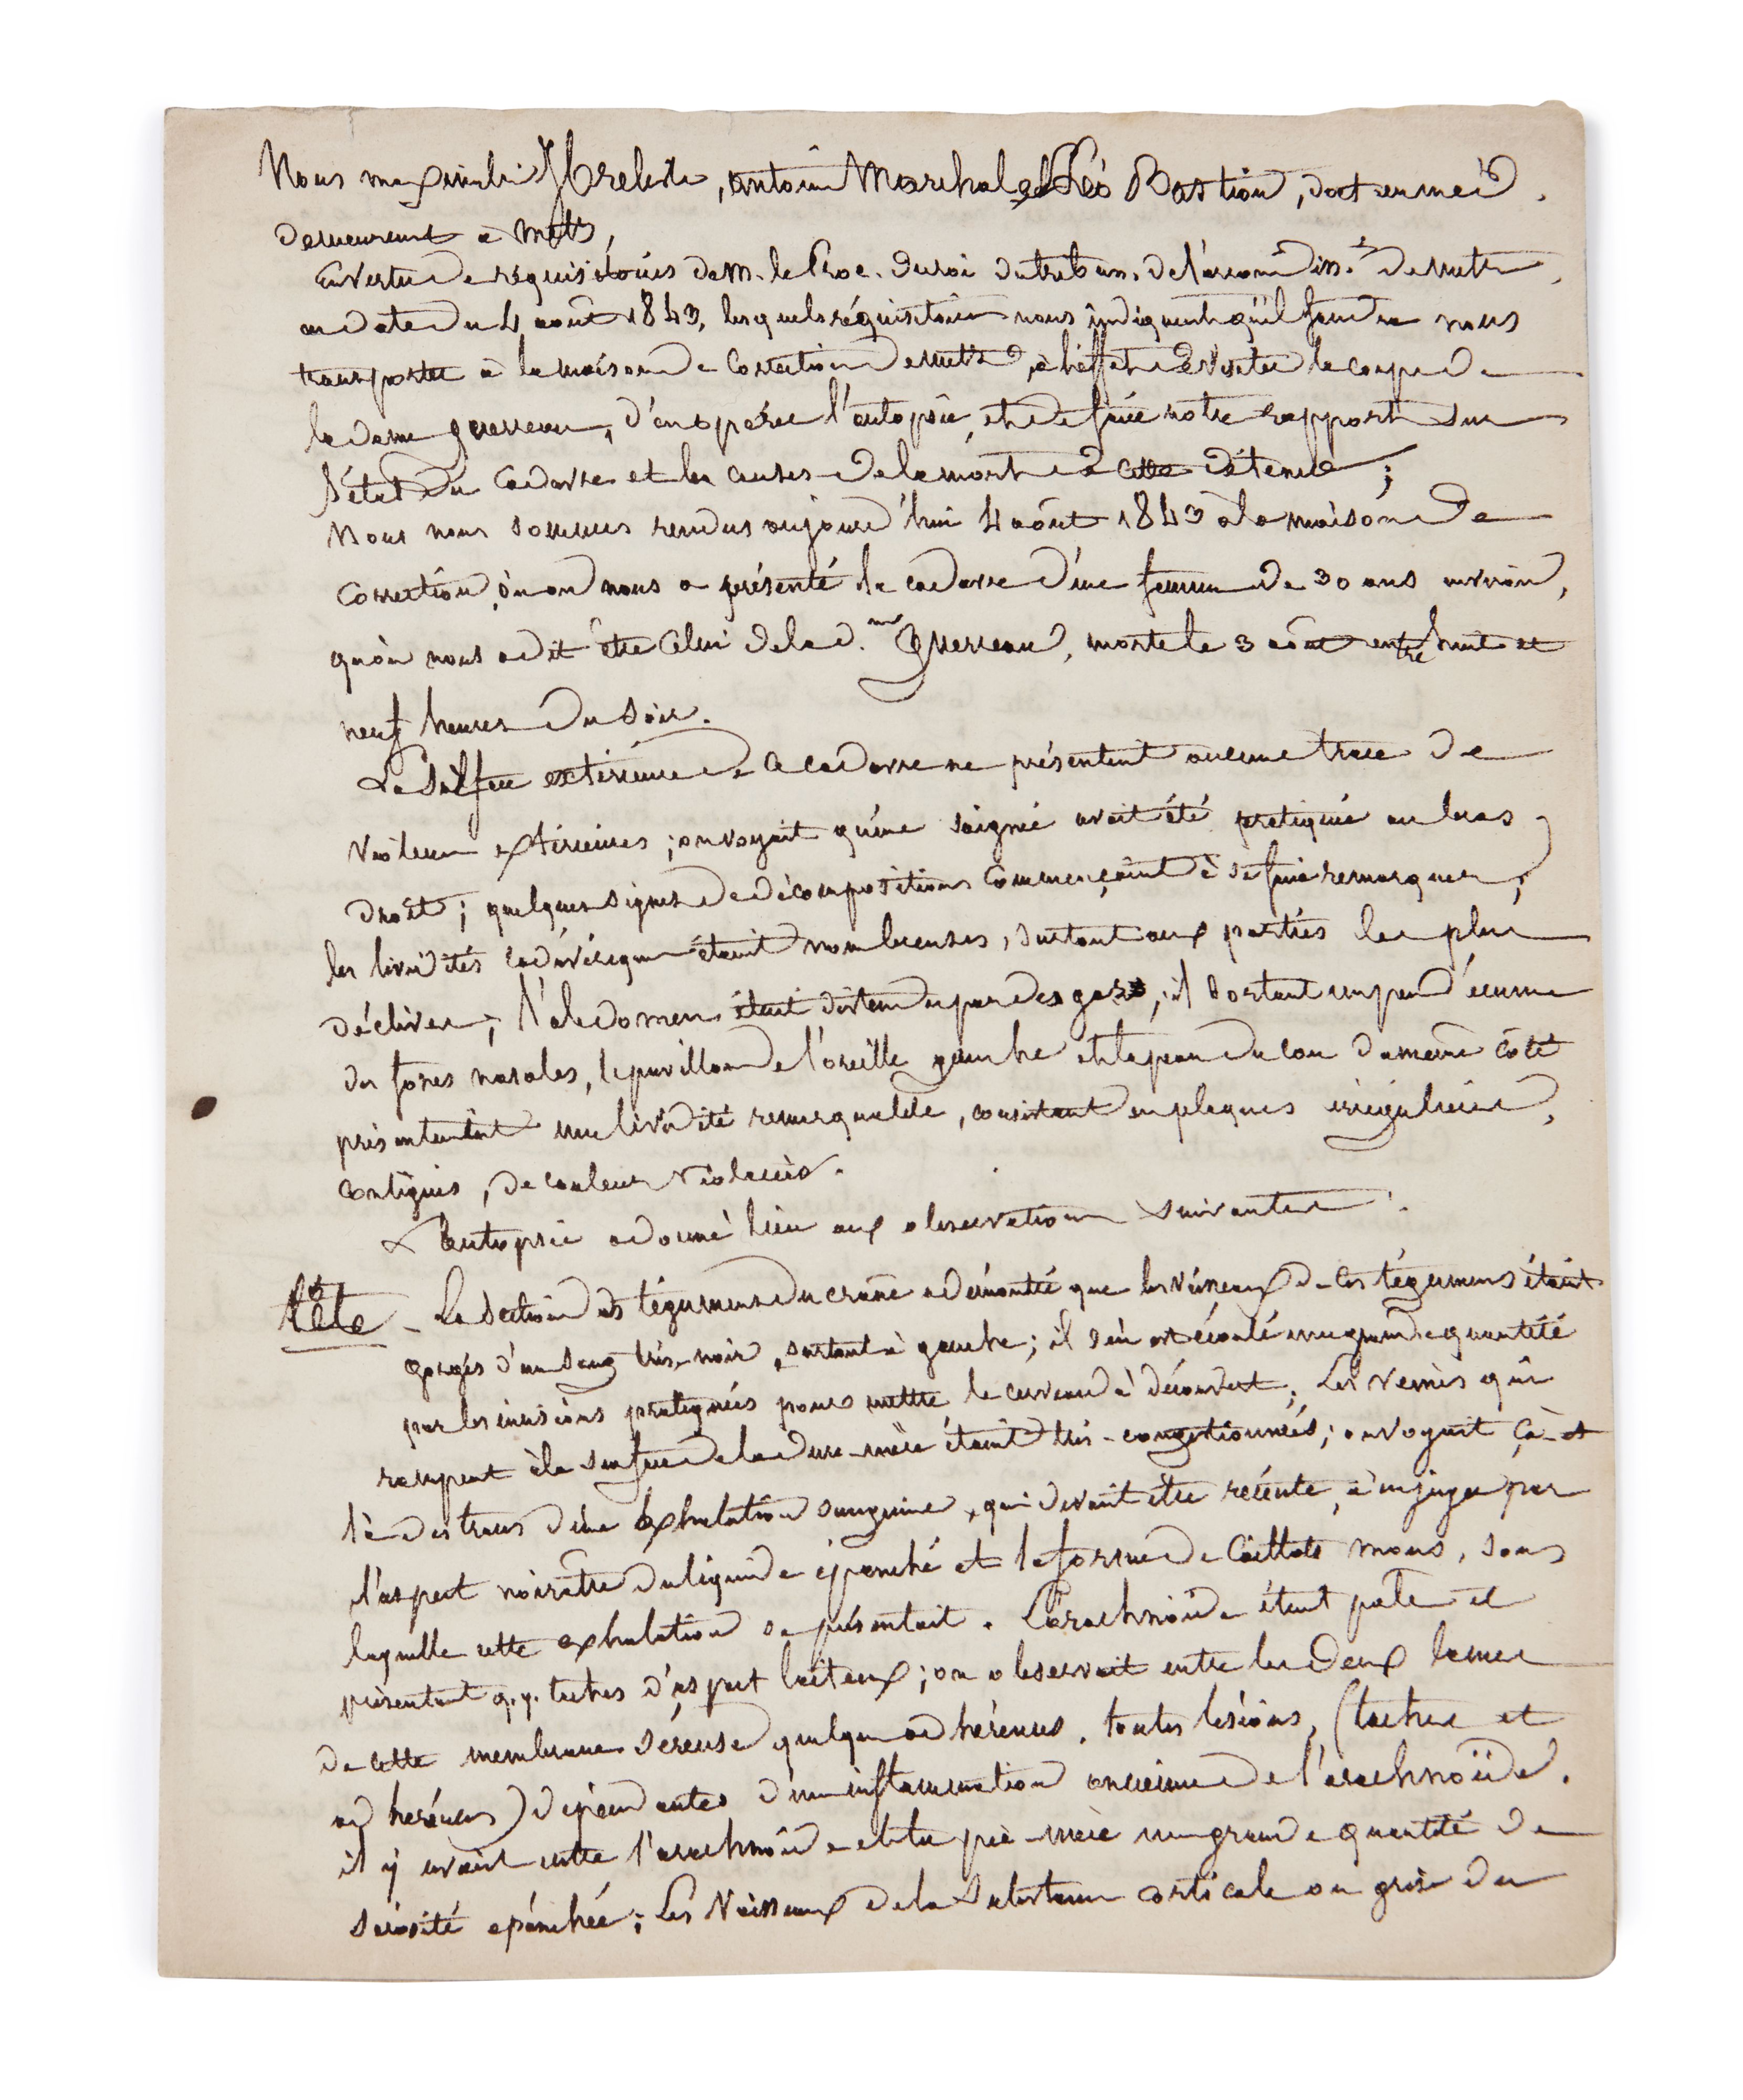 Nous maximilien Hrelista, antoine Marchal et Léo Bastion, doct en méd.
demeurant à Metz,
En vertu de réquisitoires de M. le Proc. du roi du trib. de l'arrond. de Metz,
en date du 4 août 1843, lesquels réquisitoires nous indiquent qu'il faudra nous
transporter à la maison de Correction de Metz, à l'effet de visiter le corps de
la dame querreau, d'en opérer l'autopsie, et de faire notre rapport sur
l'état du Cadavre et les causes de la mort de cette détenue;
Nous nous sommes rendus aujourd'hui 4 août 1843 à la maison de
Correction, où on nous a présenté le cadavre d'une femme de 30 ans environ,
qu'on nous a dit être Celui de la d.me Querreau, morte le 3 août entre huit et
neuf heures du soir.
La surface extérieure de ce cadavre ne présentait aucune trace de
violences extérieures; on voyait qu'une saignée avait été pratiquée au bras
droit; quelques signes de décomposition commençaient à se faire remarquer;
les lividités cadavériques étaient nombreuses, surtout aux parties les plus
déclives; l'abdomen était distendu par des gaz, il sortait un peu d'écume
des fosses nasales, le pavillon de l'oreille gauche et la peau du cou du même côté
présentaient une lividité remarquable, consistant en plaques irrégulières,
contiguës, de couleur violacée.
L'autopsie a donné lieu aux observations suivantes.
tête - La section des tégumens du crâne a démontré que les vaisseaux de ces tégumens étaient
gorgés d'un sang très-noir, surtout à gauche; il s'en est écoulé une grande quantité
par les incisions pratiquées pour mettre le cerveau à découvert. Les veines qui
rampent à la surface de la dure-mère étaient très-congestionnées; on voyait çà et
là des traces d'une exhalation sanguine, qui devait être récente, à en juger par
l'aspect noirâtre du liquide épanché et la forme de Caillots mous, sous
laquelle cette exhalation se présentait. L'arachnoïde était pâle et
présentait q.q. taches d'aspect laiteux; on observait entre les deux lames
de cette membrane séreuse quelques adhérences. toutes lésions, (taches et
adhérences) dépendantes d'une inflammation ancienne de l'arachnoïde.
il y avait entre l'arachnoïde et la pie-mère une grande quantité de
sérosité épanchée; Les Vaisseaux de la substance corticale ou grise du